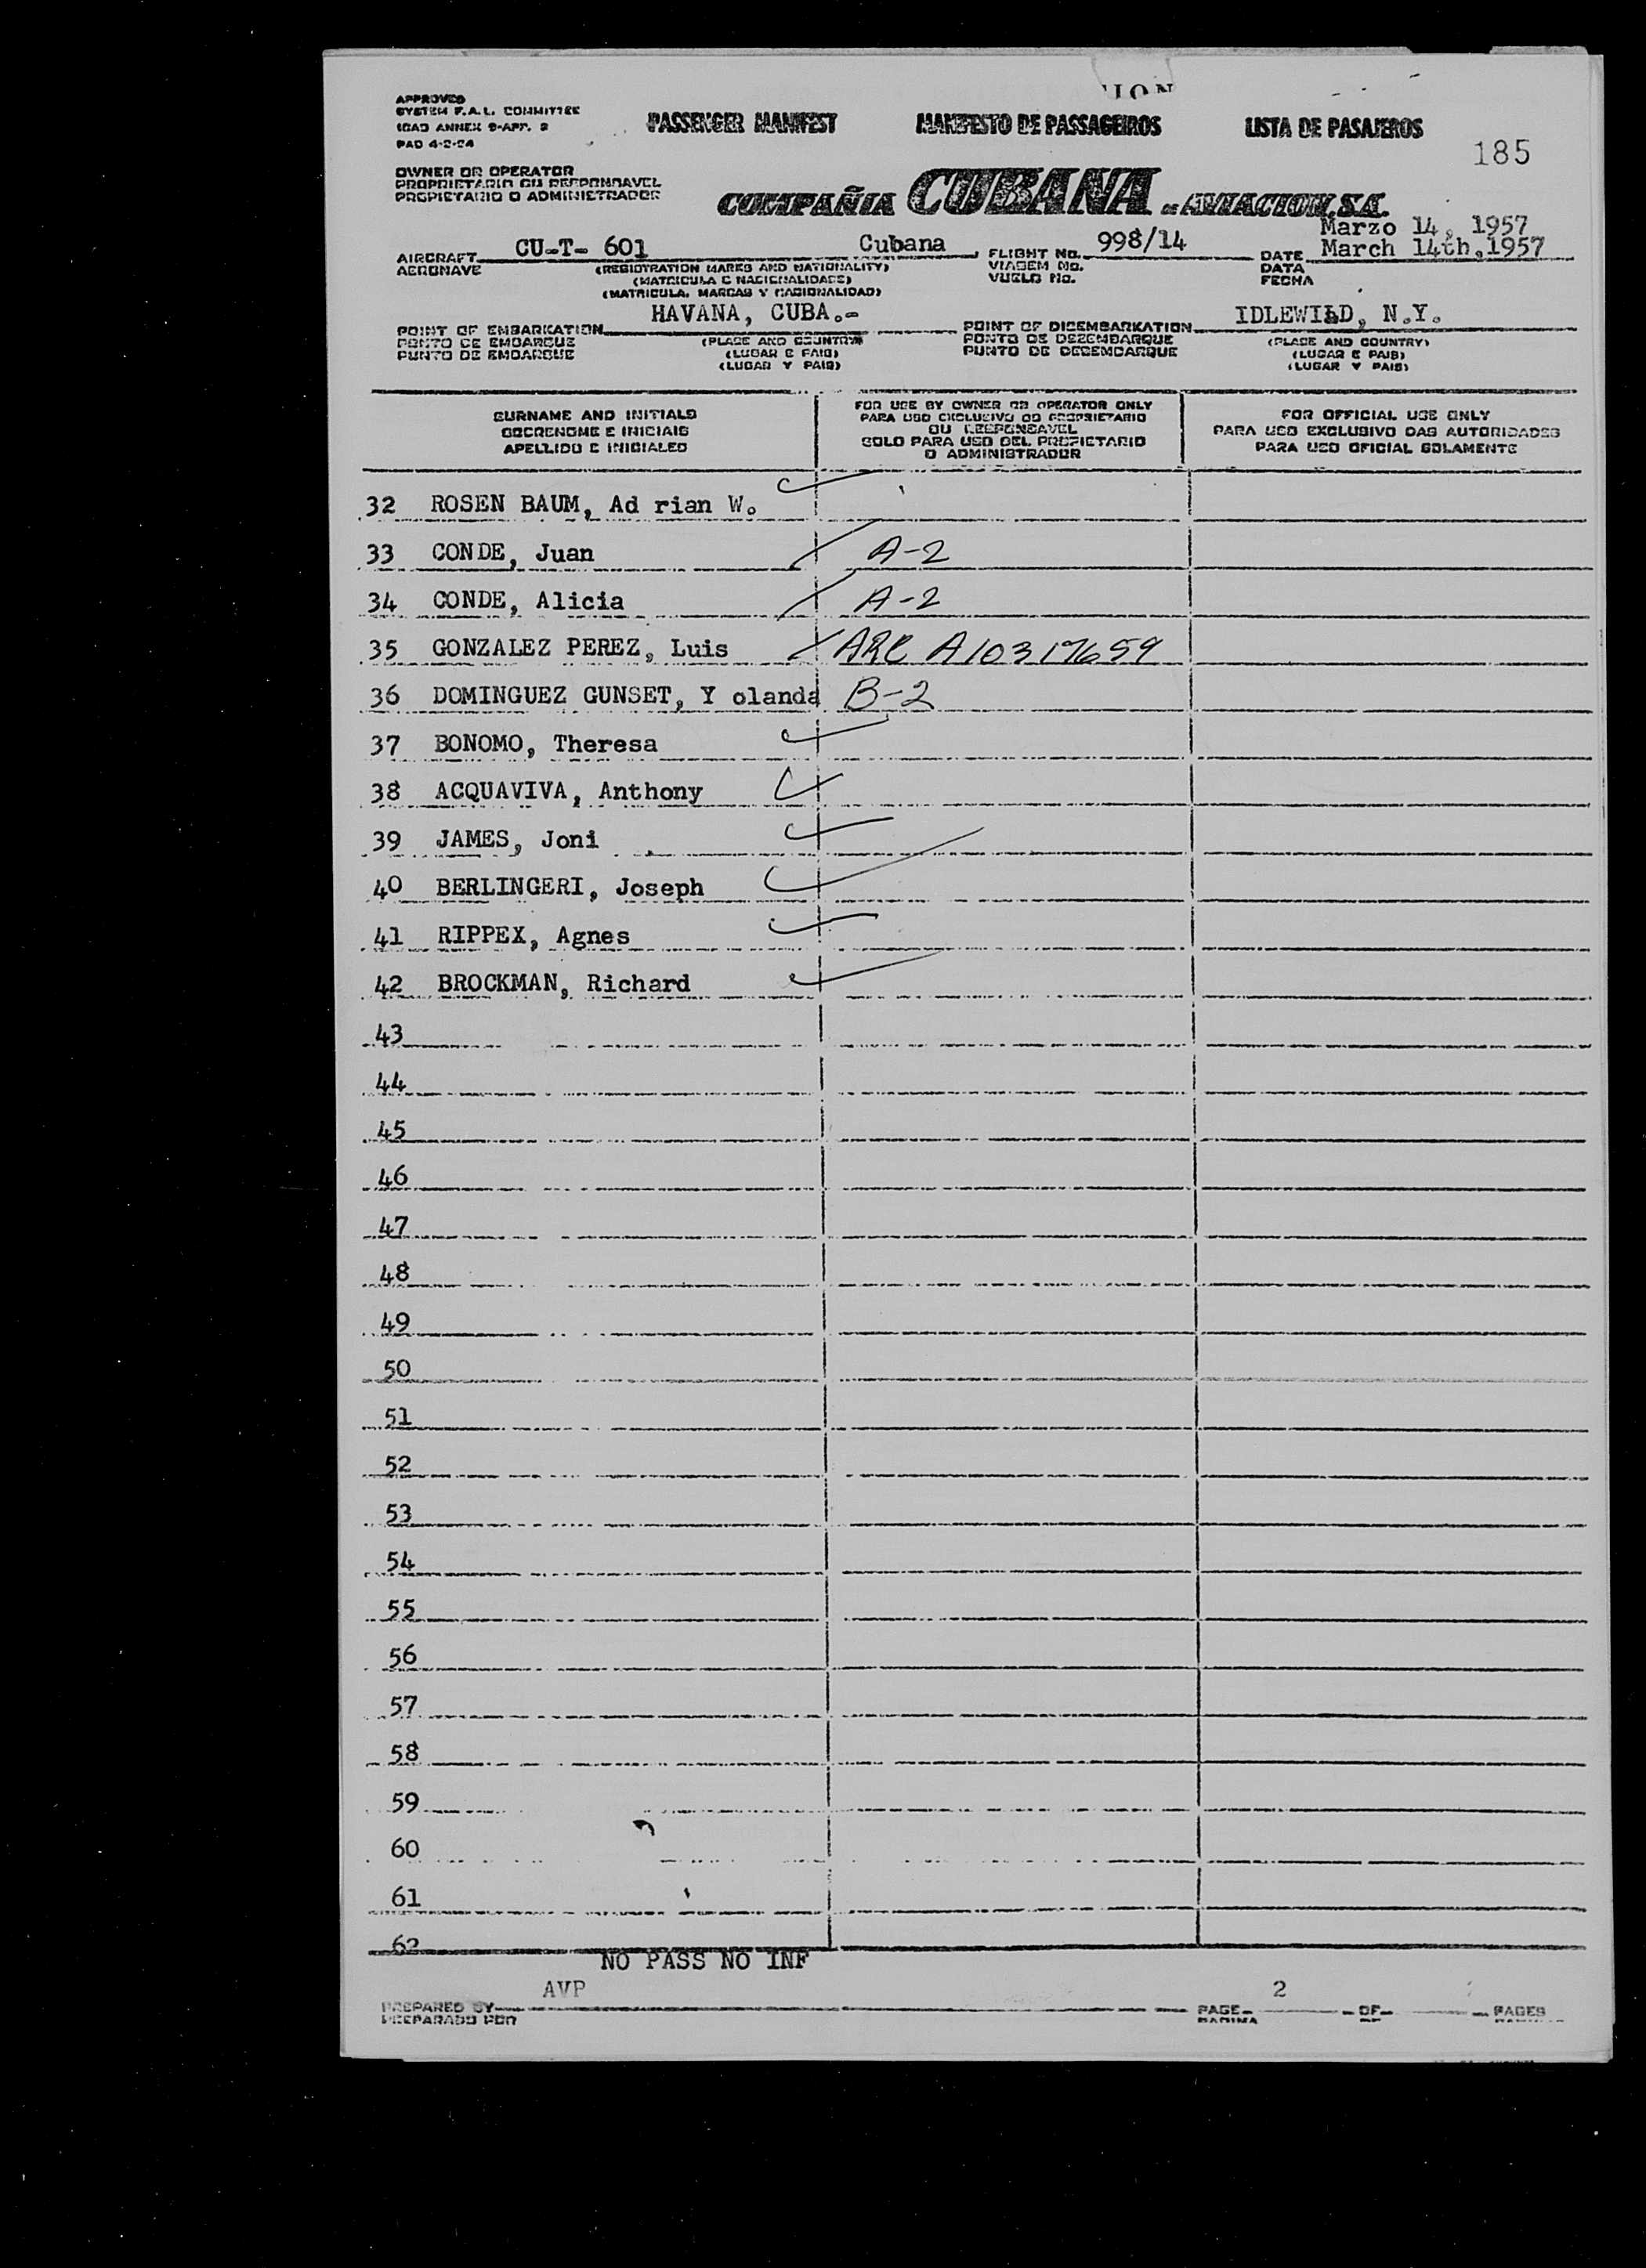 ION
APPROVED
SYSTEM F.A.L. COMMITTEE
ICAO ANNEX 9-APP. 2
PAD 4-2-54
PASSENGER MANIFEST
MANIFESTO DE PASSAGEIROS
LISTA DE PASAJEROS
185
OWNER OR OPERATOR
PROPRIETARIO OU RESPONSAVEL
PROPIETARIO O ADMINISTRADOR
COMPAÑIA CUBANA DE AVIACION, S.A.
Marzo 14, 1957
AIRCRAFT CU-T- 601 Cubana FLIGHT NO. 998/14 DATE March 14th,1957
AERONAVE (REGISTRATION MARKS AND NATIONALITY) VIAGEM NO. DATA
(MATRICULA E NACIONALIDADE) VUELO NO. FECHA
(MATRICULA, MARCAS Y NACIONALIDAD)
POINT OF EMBARKATION HAVANA, CUBA.- POINT OF DISEMBARKATION IDLEWILD, N.Y.
PONTO DE EMBARQUE (PLACE AND COUNTRY) PONTO DE DESEMBARQUE (PLACE AND COUNTRY)
PUNTO DE EMBARQUE (LUGAR E PAIS) PUNTO DE DESEMBARQUE (LUGAR E PAIS)
(LUGAR Y PAIS) (LUGAR Y PAIS)
SURNAME AND INITIALS
SOBRENOME E INICIAIS
APELLIDO E INICIALES
FOR USE BY OWNER OR OPERATOR ONLY
PARA USO EXCLUSIVO DO PROPRIETARIO
OU RESPONSAVEL
SOLO PARA USO DEL PROPIETARIO
O ADMINISTRADOR
FOR OFFICIAL USE ONLY
PARA USO EXCLUSIVO DAS AUTORIDADES
PARA USO OFICIAL SOLAMENTE
32 ROSEN BAUM, Ad rian W.
33 CONDE, Juan A-2
34 CONDE, Alicia A-2
35 GONZALEZ PEREZ, Luis ARC A10317659
36 DOMINGUEZ GUNSET, Y olanda B-2
37 BONOMO, Theresa
38 ACQUAVIVA, Anthony
39 JAMES, Joni
40 BERLINGERI, Joseph
41 RIPPEX, Agnes
42 BROCKMAN, Richard
43
44
45
46
47
48
49
50
51
52
53
54
55
56
57
58
59
60
61
62
NO PASS NO INF
AVP 2
PREPARED BY PAGE OF PAGES
PREPARADO POR PAGINA DE